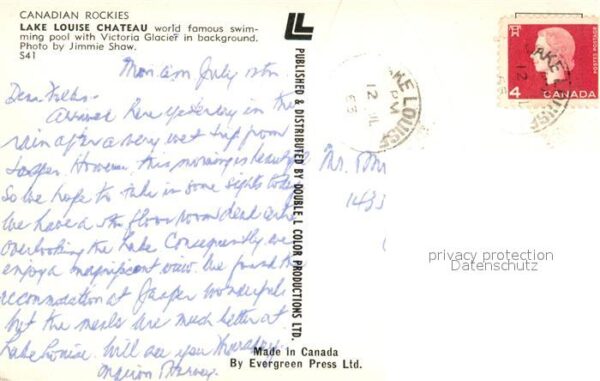 CANADIAN ROCKIES
LAKE LOUISE CHATEAU world famous swim-
ming pool with Victoria Glacier in background.
Photo by Jimmie Shaw.
S41
Mon am July 12th
Dear Folks-
Arrived here yesterday in the
rain after a very wet trip from
Jasper. However, this morning is beautiful
So we hope to take in some sights today
We have a 5th floor room dead center
overlooking the Lake Consequently we
enjoy a magnificent view. We found the
accommodation at Jasper wonderful
but the meals are much better at
Lake Louise. Will see you Thursday
Harvey
PUBLISHED & DISTRIBUTED BY DOUBLE L COLOR PRODUCTIONS LTD.
Made in Canada
By Evergreen Press Ltd.
LAKE LOUISE
PM
12 JL
65
POSTES POSTAGE
4 CANADA
LAKE LOUISE
12
Mr.
1433
privacy protection
Datenschutz